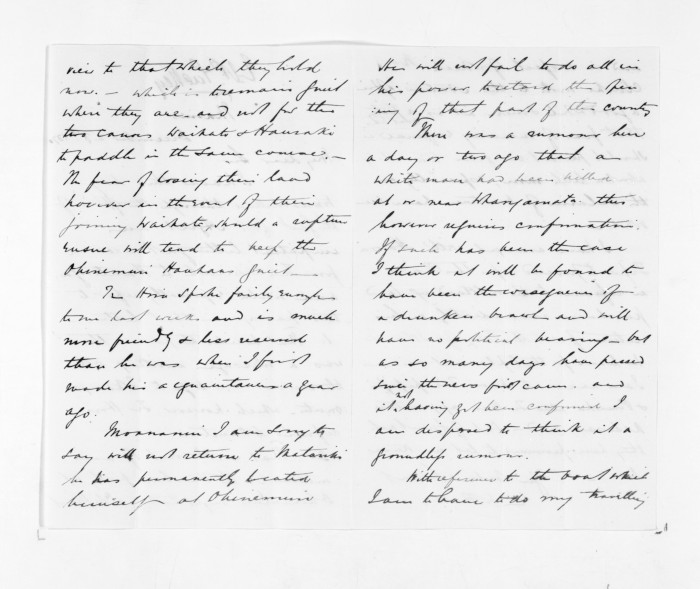 view to that which they hold
now. – which is to remain quiet
where they are and not for the
two canoes Waikato & Hauraki
to paddle in the same course. –
The fear of losing their land
however in the event of their
joining Waikato, should a rupture
ensue will tend to keep the
Ohinemuri Hauhaus quiet –
Te Hira spoke fairly enough
to me last week and is much
more friendly & less reserved
than he was when I first
made his acquaintance a year
ago.
Moananui I am sorry to
say will not return to Matariki
he has permanently located
himself at Ohinemuri
He will not fail to do all in
his power to retard the open
ing of that part of the country
There was a rumour here
a day or two ago that a
white man had been killed
at or near Whangamata this
however requires confirmation.
If such has been the case
I think it will be found to
have been the consequence of
a drunken brawl and will
have no political bearing – but
as so many days have passed
since the news first came and
it not having yet been confirmed I
am disposed to think it a
groundless rumour.
With reference to the boat which
I am to have to do my travelling